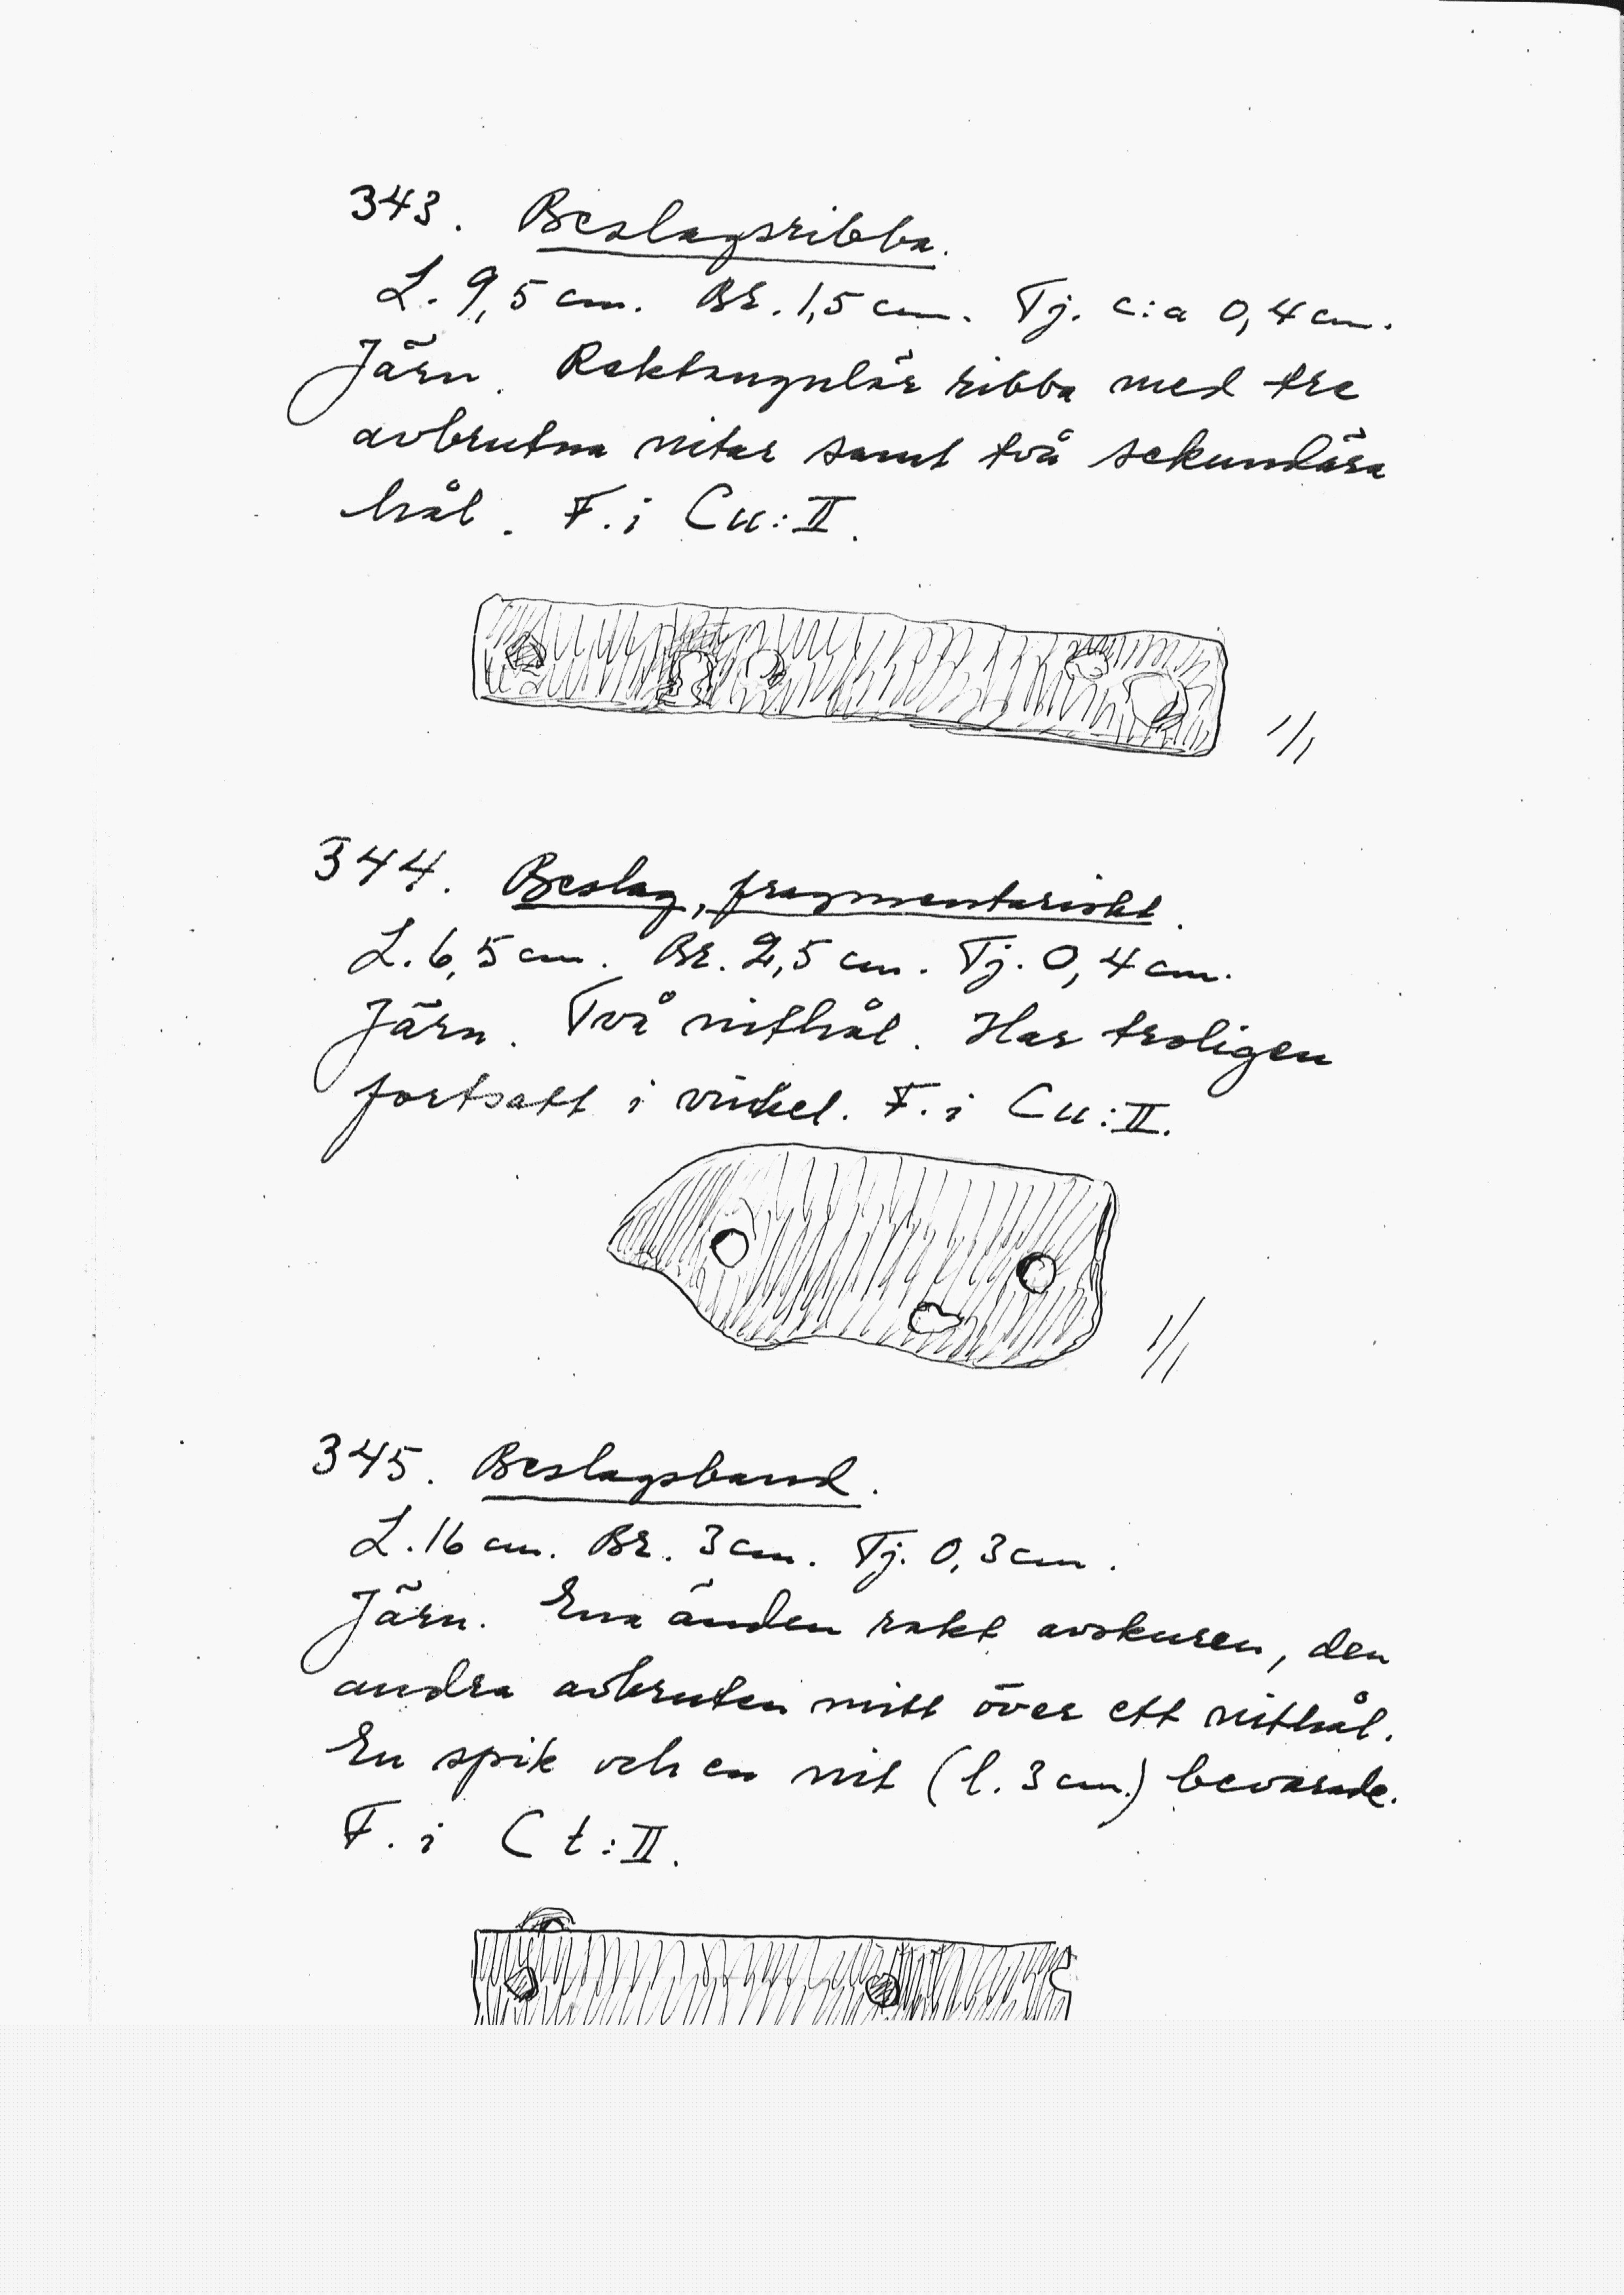 343. Beslagsribba.
L. 9,5 cm. Br. 1,5 cm. Tj. c:a 0,4 cm.
Järn. Rektangulär ribba med tre
avbrutna nitar samt två sekundära
hål. F. i Cu:II.
1/1
344. Beslag, fragmentariskt.
L. 6,5 cm. Br. 2,5 cm. Tj. 0,4 cm.
Järn. Två nithål. Har troligen
fortsatt i vinkel. F. i Cu:II.
1/1
345. Beslagsband.
L. 16 cm. Br. 3 cm. Tj. 0,3 cm.
Järn. Ena änden rakt avskuren, den
andra avbruten mitt över ett nithål.
En spik och en nit (l. 3 cm.) bevarade.
F. i Ct:II.